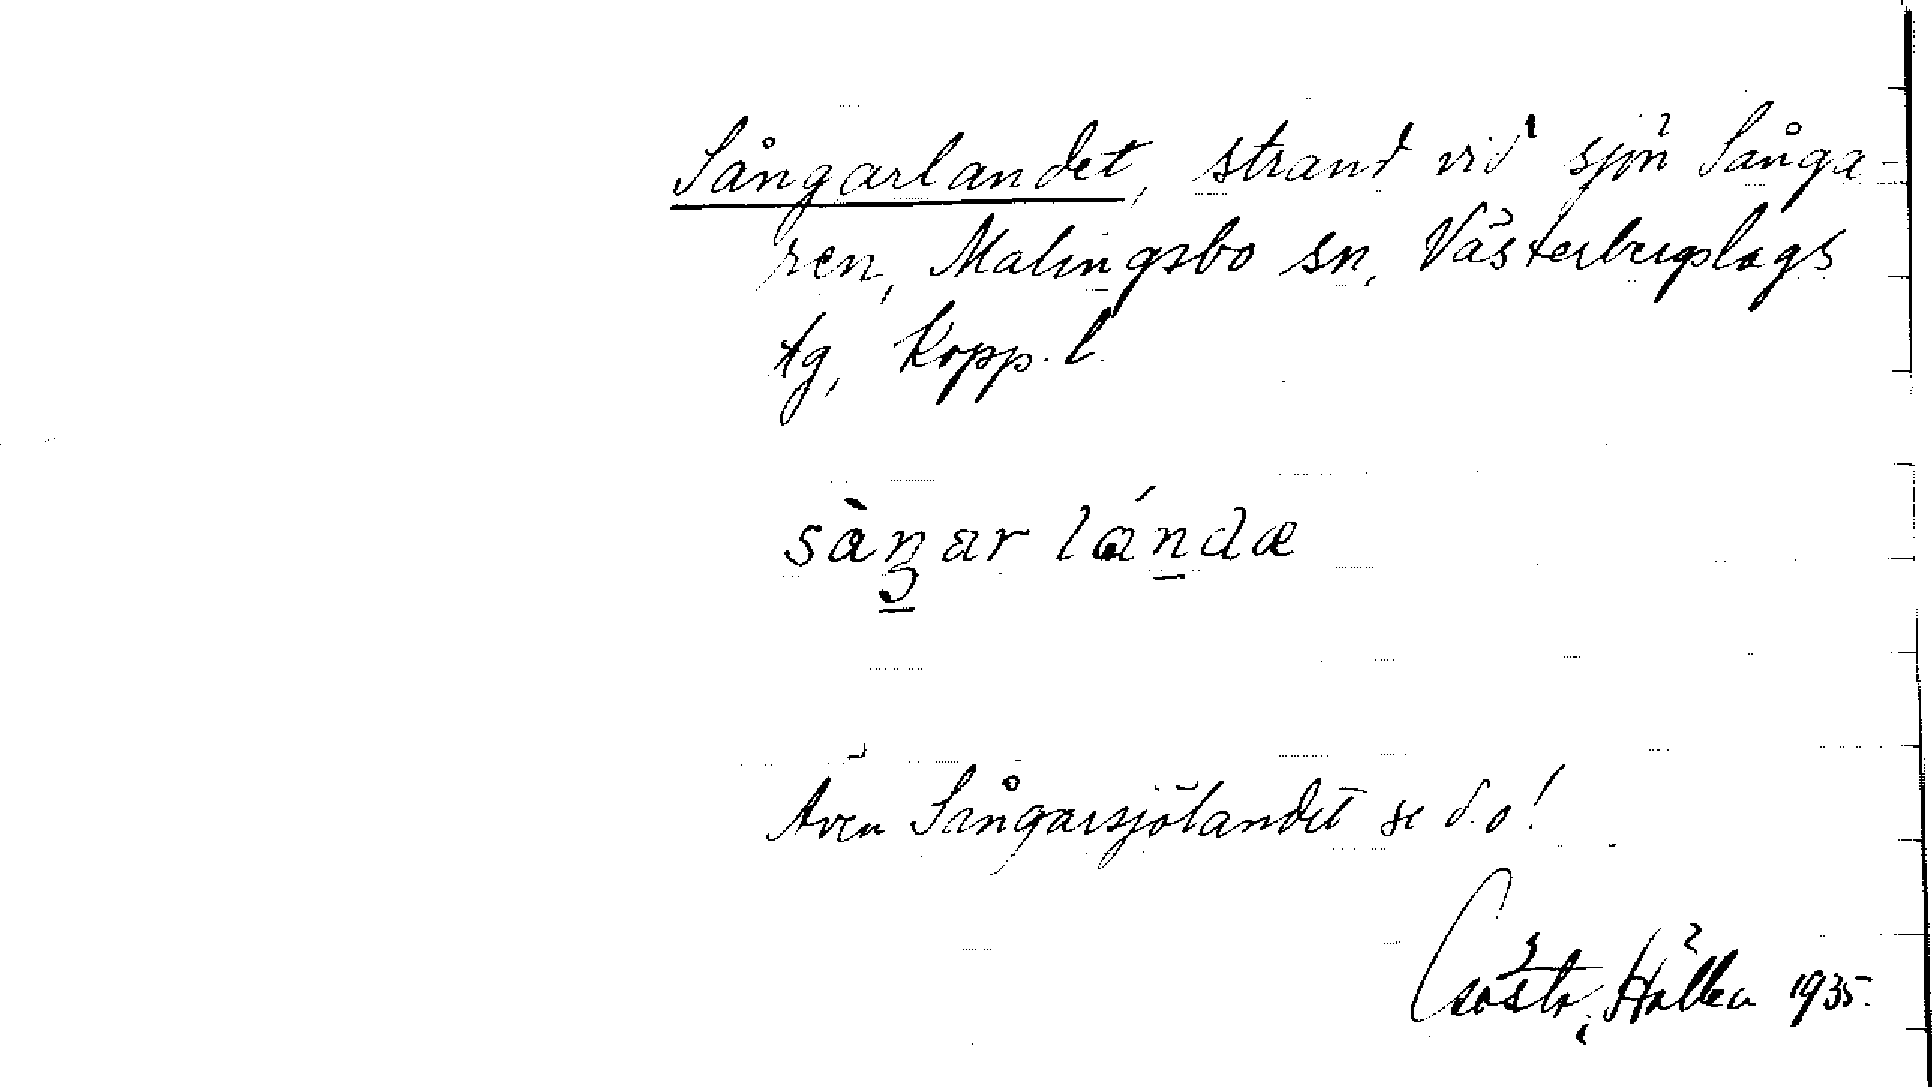 Sångarlandet, strand vid sjön Sånga-
ren, Malingsbo sn, Västerbergslags
tg, Kopp. l.
sàŋar lándæ
Även Sångarsjölandet se d.o!
Gösta Hållen 1935.